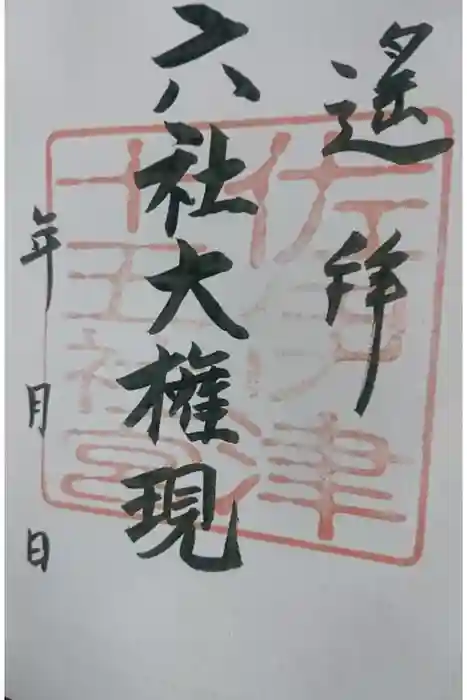 遥拝
六社大権現
年月日
佐倶伊津
十五社宮